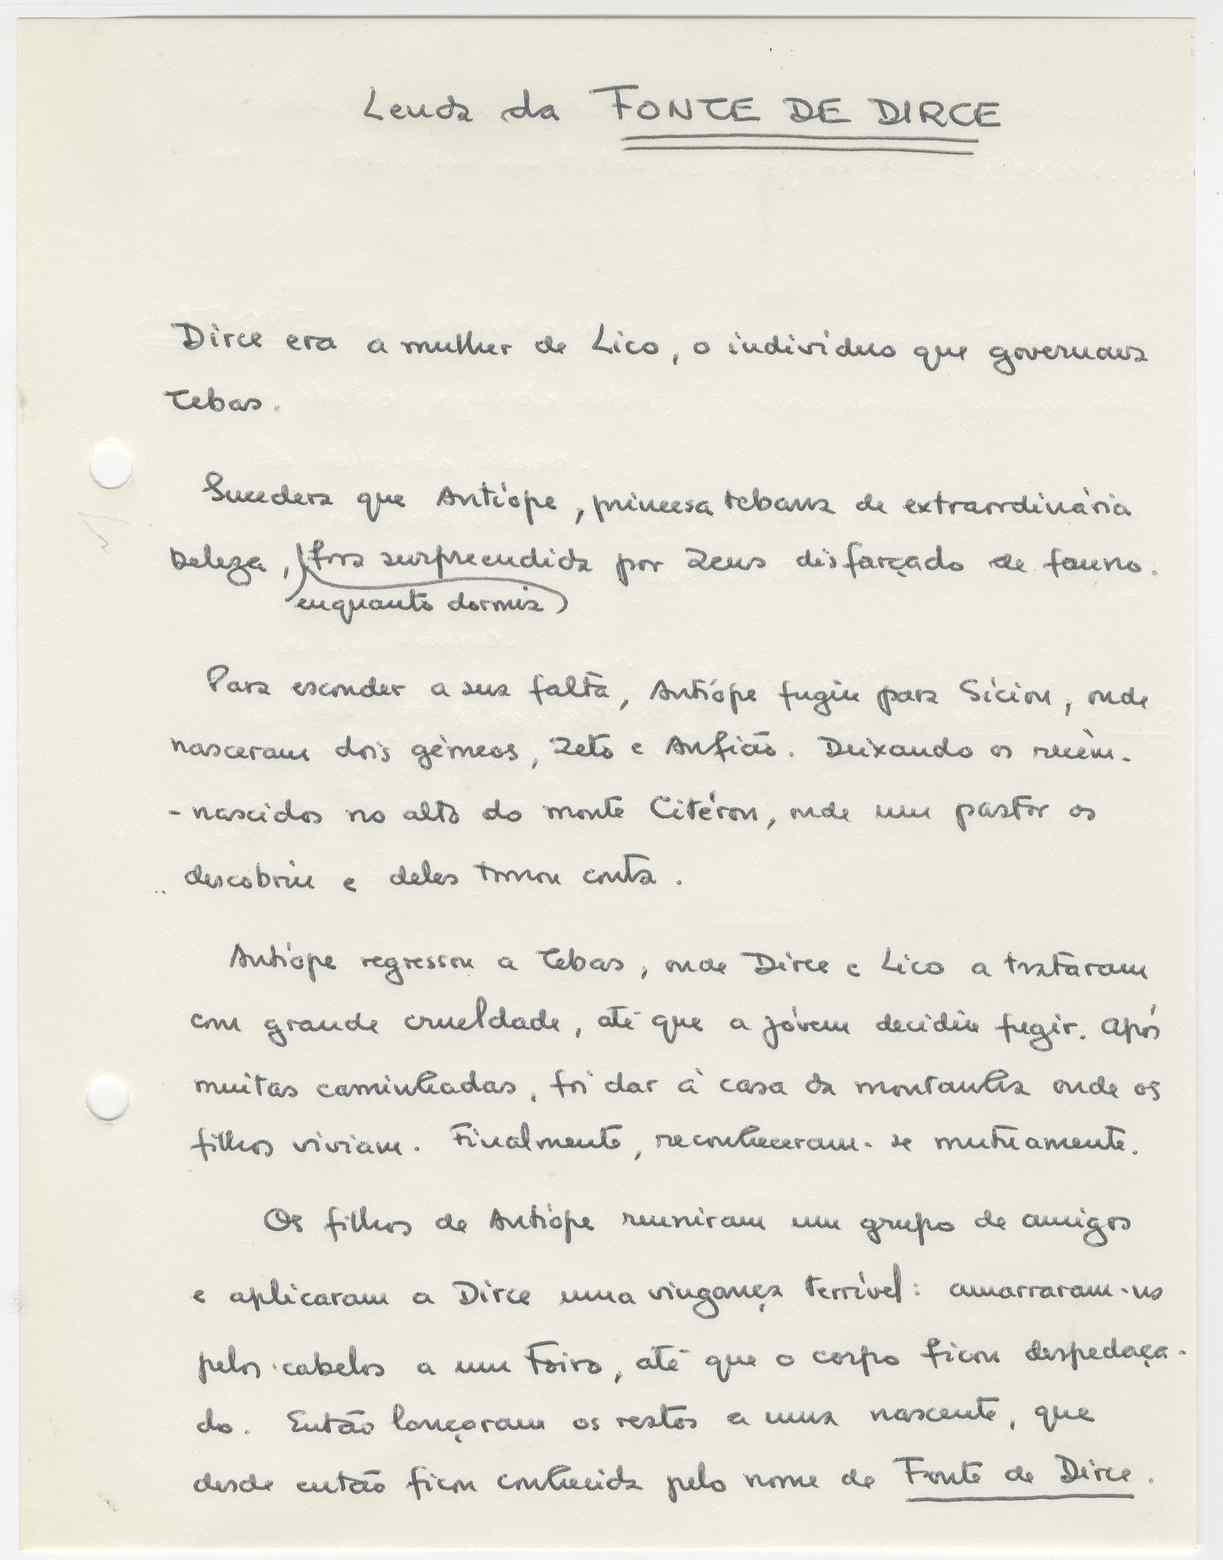 Lenda da FONTE DE DIRCE
Dirce era a mulher de Lico, o indivíduo que governava
Tebas.
Sucedera que Antíope, princesa tebana de extraordinária
beleza, fora surpreendida por Zeus disfarçado de fauno.
enquanto dormia
Para esconder a sua falta, Antíope fugiu para Sícion, onde
nasceram dois gémeos, Zeto e Anfião. Deixando os recém-
-nascidos no alto do monte Citéron, onde um pastor os
descobriu e deles tomou conta.
Antíope regressou a Tebas, onde Dirce e Lico a trataram
com grande crueldade, até que a jóvem decidiu fugir. Após
muitas caminhadas, foi dar à casa da montanha onde os
filhos viviam. Finalmente, reconheceram-se mutuamente.
Os filhos de Antíope reuniram um grupo de amigos
e aplicaram a Dirce uma vingança terrível: amarraram-na
pelos cabelos a um Toiro, até que o corpo ficou despedaça-
do. Então lançaram os restos a uma nascente, que
desde então ficou conhecida pelo nome de Fonte de Dirce.